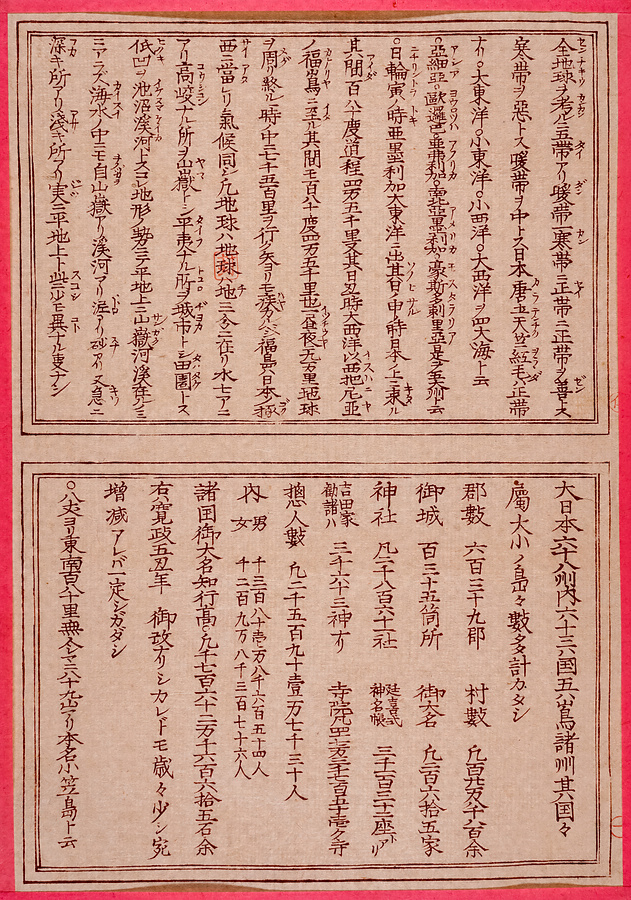 全地球ヲ考ルニ五帯アリ暖帯一寒帯二正帯二正帯ヲ善トス
寒帯ヲ悪トス暖帯ヲ中トス日本唐土天竺紅毛ハ正帯
ナリ○大東洋○小東洋○小西洋○大西洋ヲ四大海ト云
○亞細亞○歐邏巴○亜弗利加○南北亞墨利加○豪斯多剌里亞是ヲ ト云
○日輪寅ノ時亜墨利加大東洋ニ出其日ノ申ノ時日本ノ上ニ東ル
其間百八十度道程四万五千里又其日ノ 時大西洋以西把尼亞
ノ福島ニ至ル其間モ百八十度四万五千里也一昼夜九万里地球
ヲ周リ終ル一時ノ中ニ七千五百里ヲ行ク矢ヨリモ疾カルベシ福島ハ日本ノ極
西ニ當レリ氣候同シ凢地球ハ地球ハ地三分ニ在リ水土
アリ高峻ナル所ヲ山嶽トシ平夷ナル所ヲ城市トシ田園トス
低凹ヲ池沼溪河トスコレ地形ノ勢ニテ地上ニ山嶽河溪
ニアラズ海水ノ中ニモ自山嶽アリ溪河アリ泥アリ砂アリ又急ニ
深キ所アリ浅キ所アリ実ニ平地上ト些少モ異ナル叓ナシ
大日本六十八州内六十三国五ケ島諸州其国々
属大小ノ島々數多計カタシ
郡數 六百三十九郡 村數 凢百 万八千六百余
御城 百三十五箇所 御大名 凢二百六拾五家
神社 凢二千八百六十一社 延喜式神名帳 三千百三十二座トアリ
吉田家勧請ハ 三千六十三神ナリ 寺院四 万三千七百五十壱ケ寺
惣人數 凢二千五百九十壹万七千三十人
内 男 千三百八十壱万八千六百五十四人
女 千二百九万八千三百七十六人
諸国御大名知行高凢千七百六十二万千六百六拾五石余
右寛政五丑年 御改ナリシカレドモ歳々少シ宛
増減アレバ一定シガダシ
○八丈ヨリ東南百八十里無人 三十九 アリ本名小笠島ト云